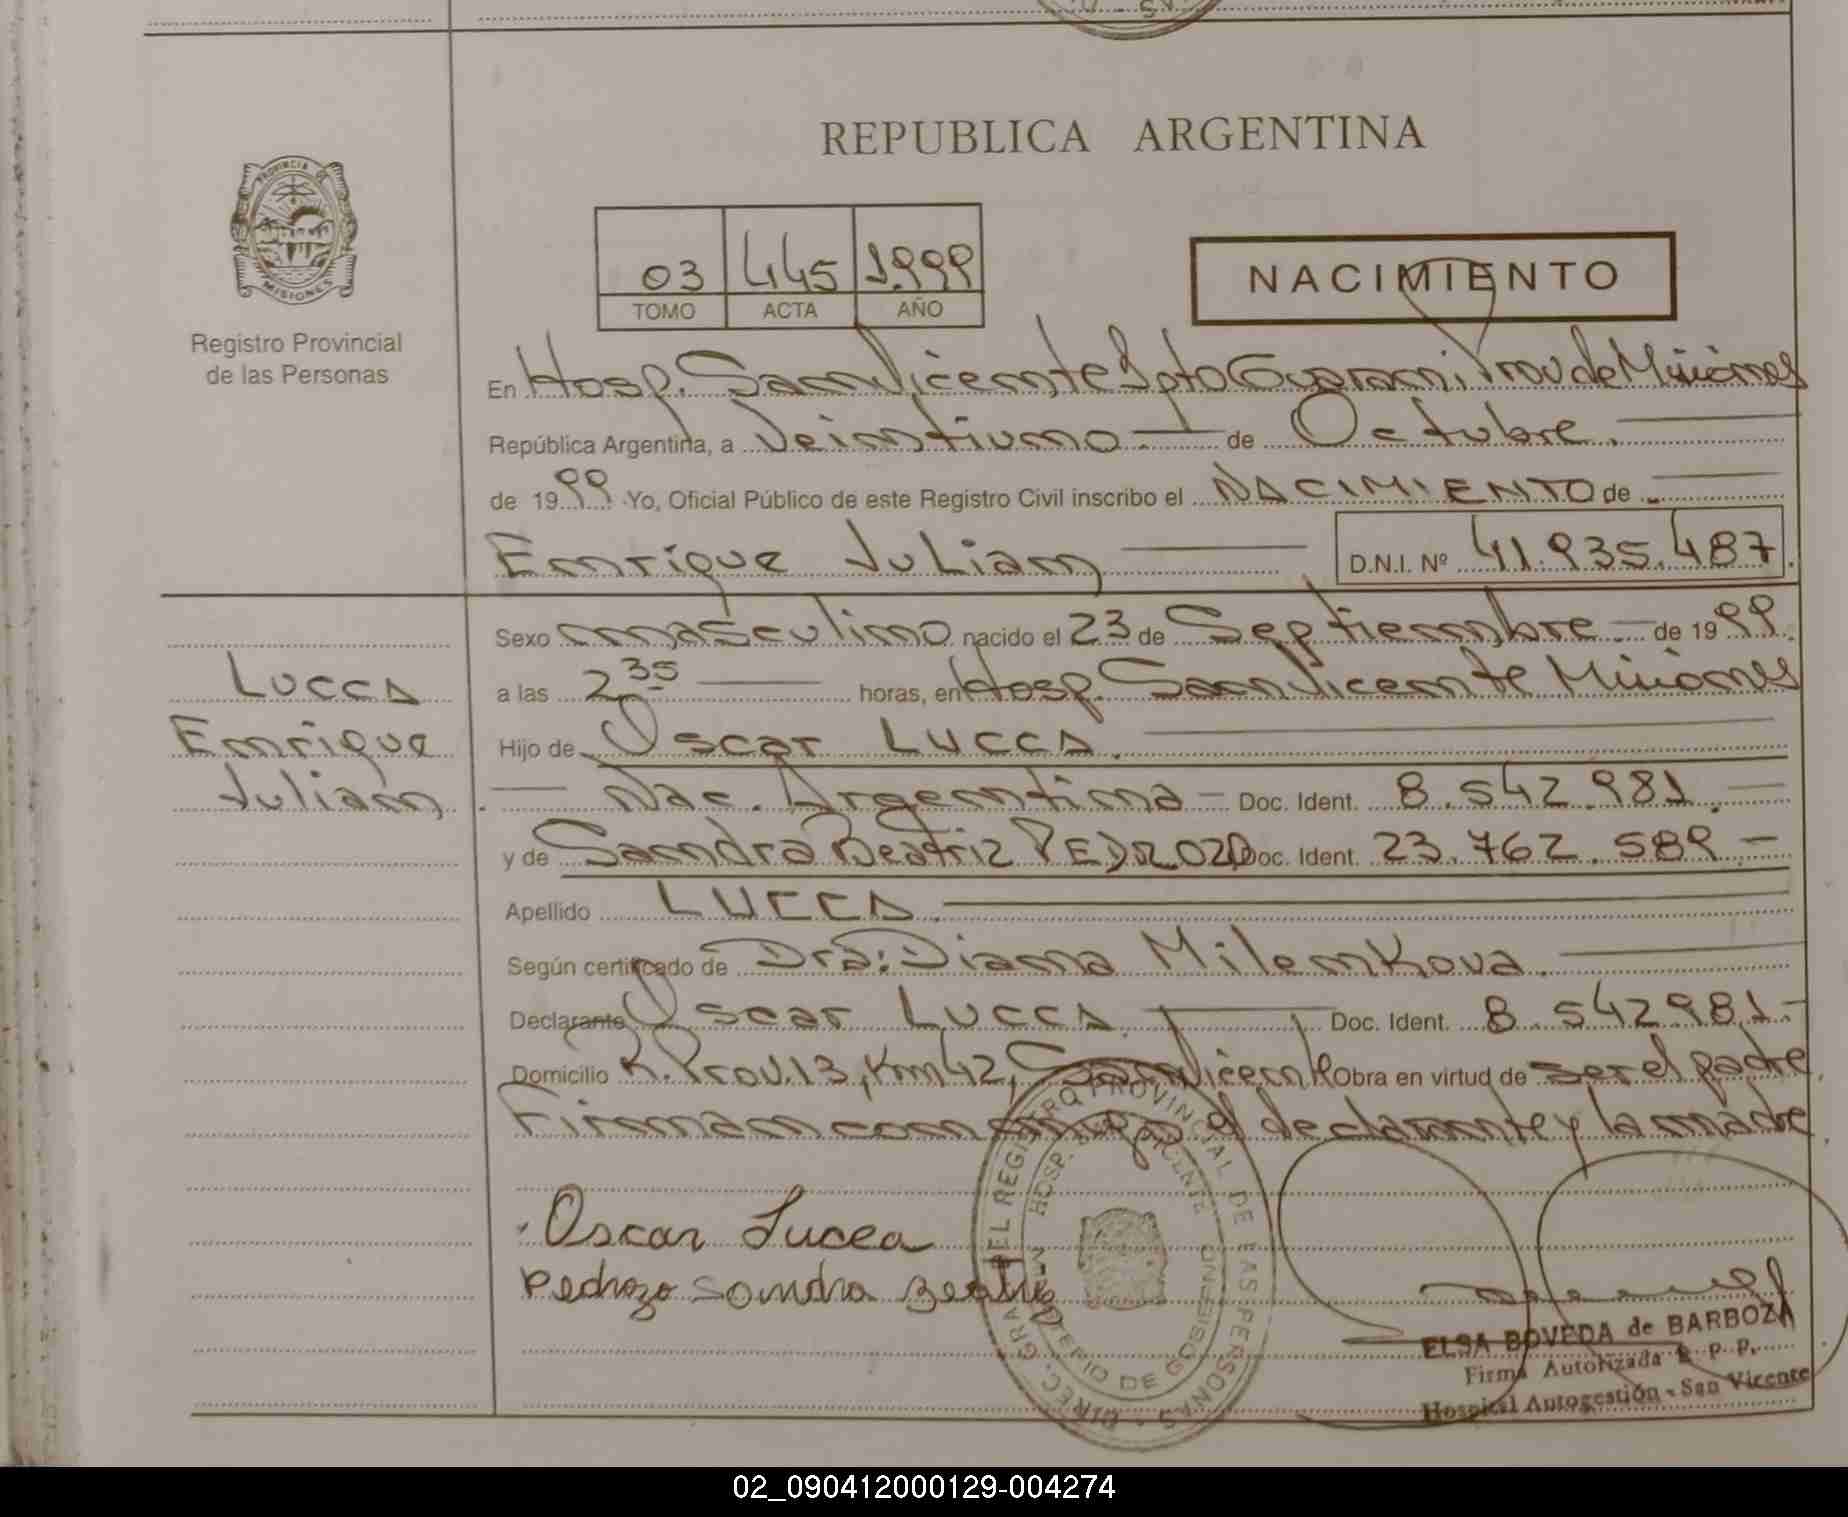 REPUBLICA ARGENTINA
PROVINCIA DE
MISIONES
Registro Provincial
de las Personas
03 445 1999
TOMO ACTA AÑO
NACIMIENTO
En Hosp. San Vicente Dpto Guarani, Prov de Misiones
República Argentina, a Veintiuno de Octubre.
de 1999 Yo, Oficial Público de este Registro Civil inscribo el NACIMIENTO de
Enrique Julian D.N.I. Nº 41.935.487
Lucca
Enrique
Julian
Sexo masculino nacido el 23 de Septiembre de 1999
a las 2 35 horas, en Hosp. San Vicente Misiones
Hijo de Oscar LUCCA.
Nac. Argentina Doc. Ident. 8.542.981.
y de Sandra Beatriz PEDROZO Doc. Ident. 23.762.589
Apellido LUCCA.
Según certificado de Dra: Diana Milenkova.
Declarante Oscar LUCCA. Doc. Ident. 8.542981
Domicilio R. Prov. 13, Km 42, San Vicente Obra en virtud de ser el padre.
Firman conmigo el declarante y la madre.
Oscar Lucca
Pedrozo Sandra Beatriz
DIREC. GRAL. DEL REGISTRO PROVINCIAL DE LAS PERSONAS
HOSP. VICENTE
DE GOB
ELSA BOVEDA de BARBOZA
Firma Autorizada
Hospital Autogestión - San Vicente
02_090412000129-004274